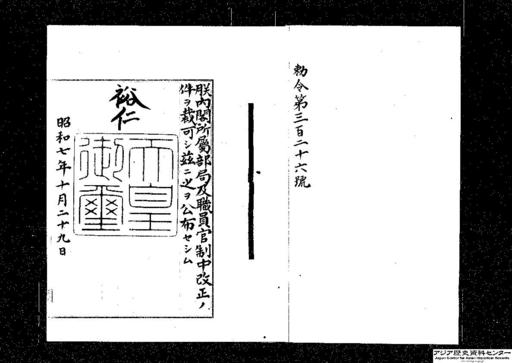 勅令第三百二十六號
朕內閣所屬部局及職員官制中改正ノ
件ヲ裁可シ玆ニ之ヲ公布セシム
裕仁
天皇
御璽
昭和七年十月二十九日
アジア歴史資料センター
Japan Center for Asian Historical Records